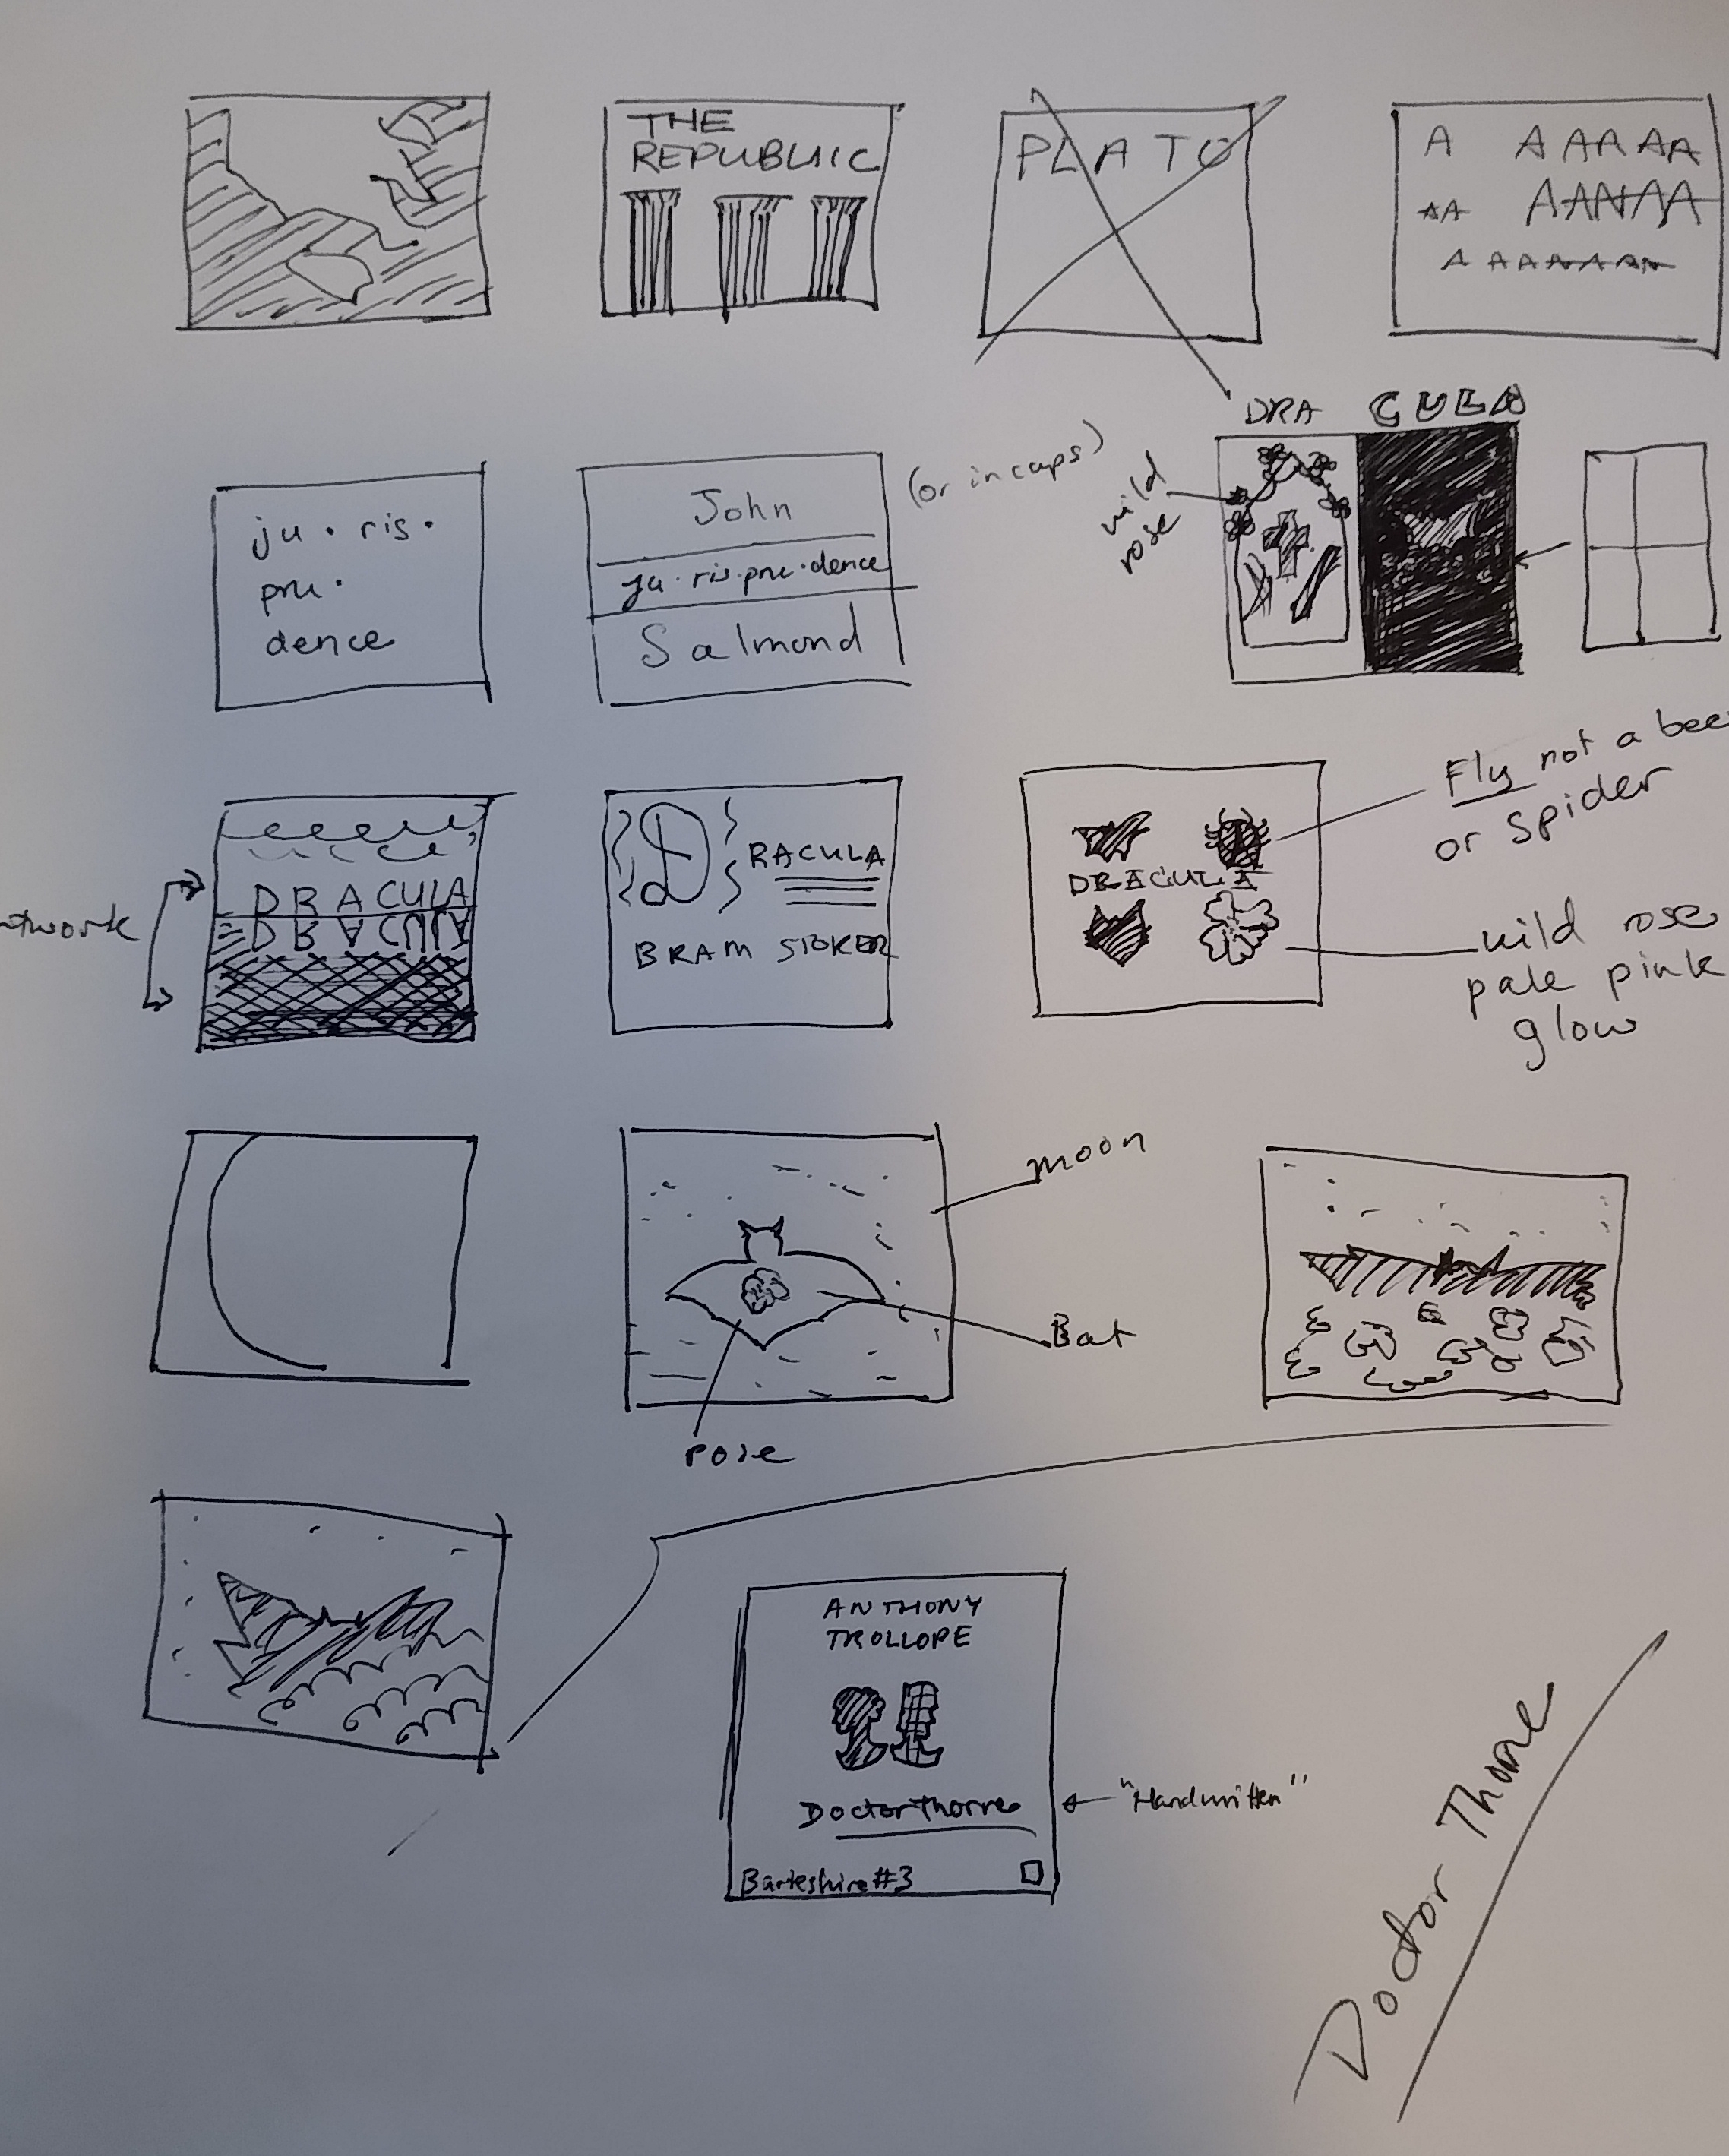 THE
REPUBLIC
PLATO
A A AA AA
AA AAAAA
A AAAAAAA
ju · ris ·
pru ·
dence
John
ju·ris·pru·dence
Salmond
(or in caps)
DRA CULA
wild
rose
DRACULA
DRACULA
DRACULA
BRAM STOKER
DRACULA
Fly not a bee
or spider
wild rose
pale pink
glow
moon
Bat
rose
ANTHONY
TROLLOPE
Doctor Thorne
"Handwritten"
#3
Doctor Thorne